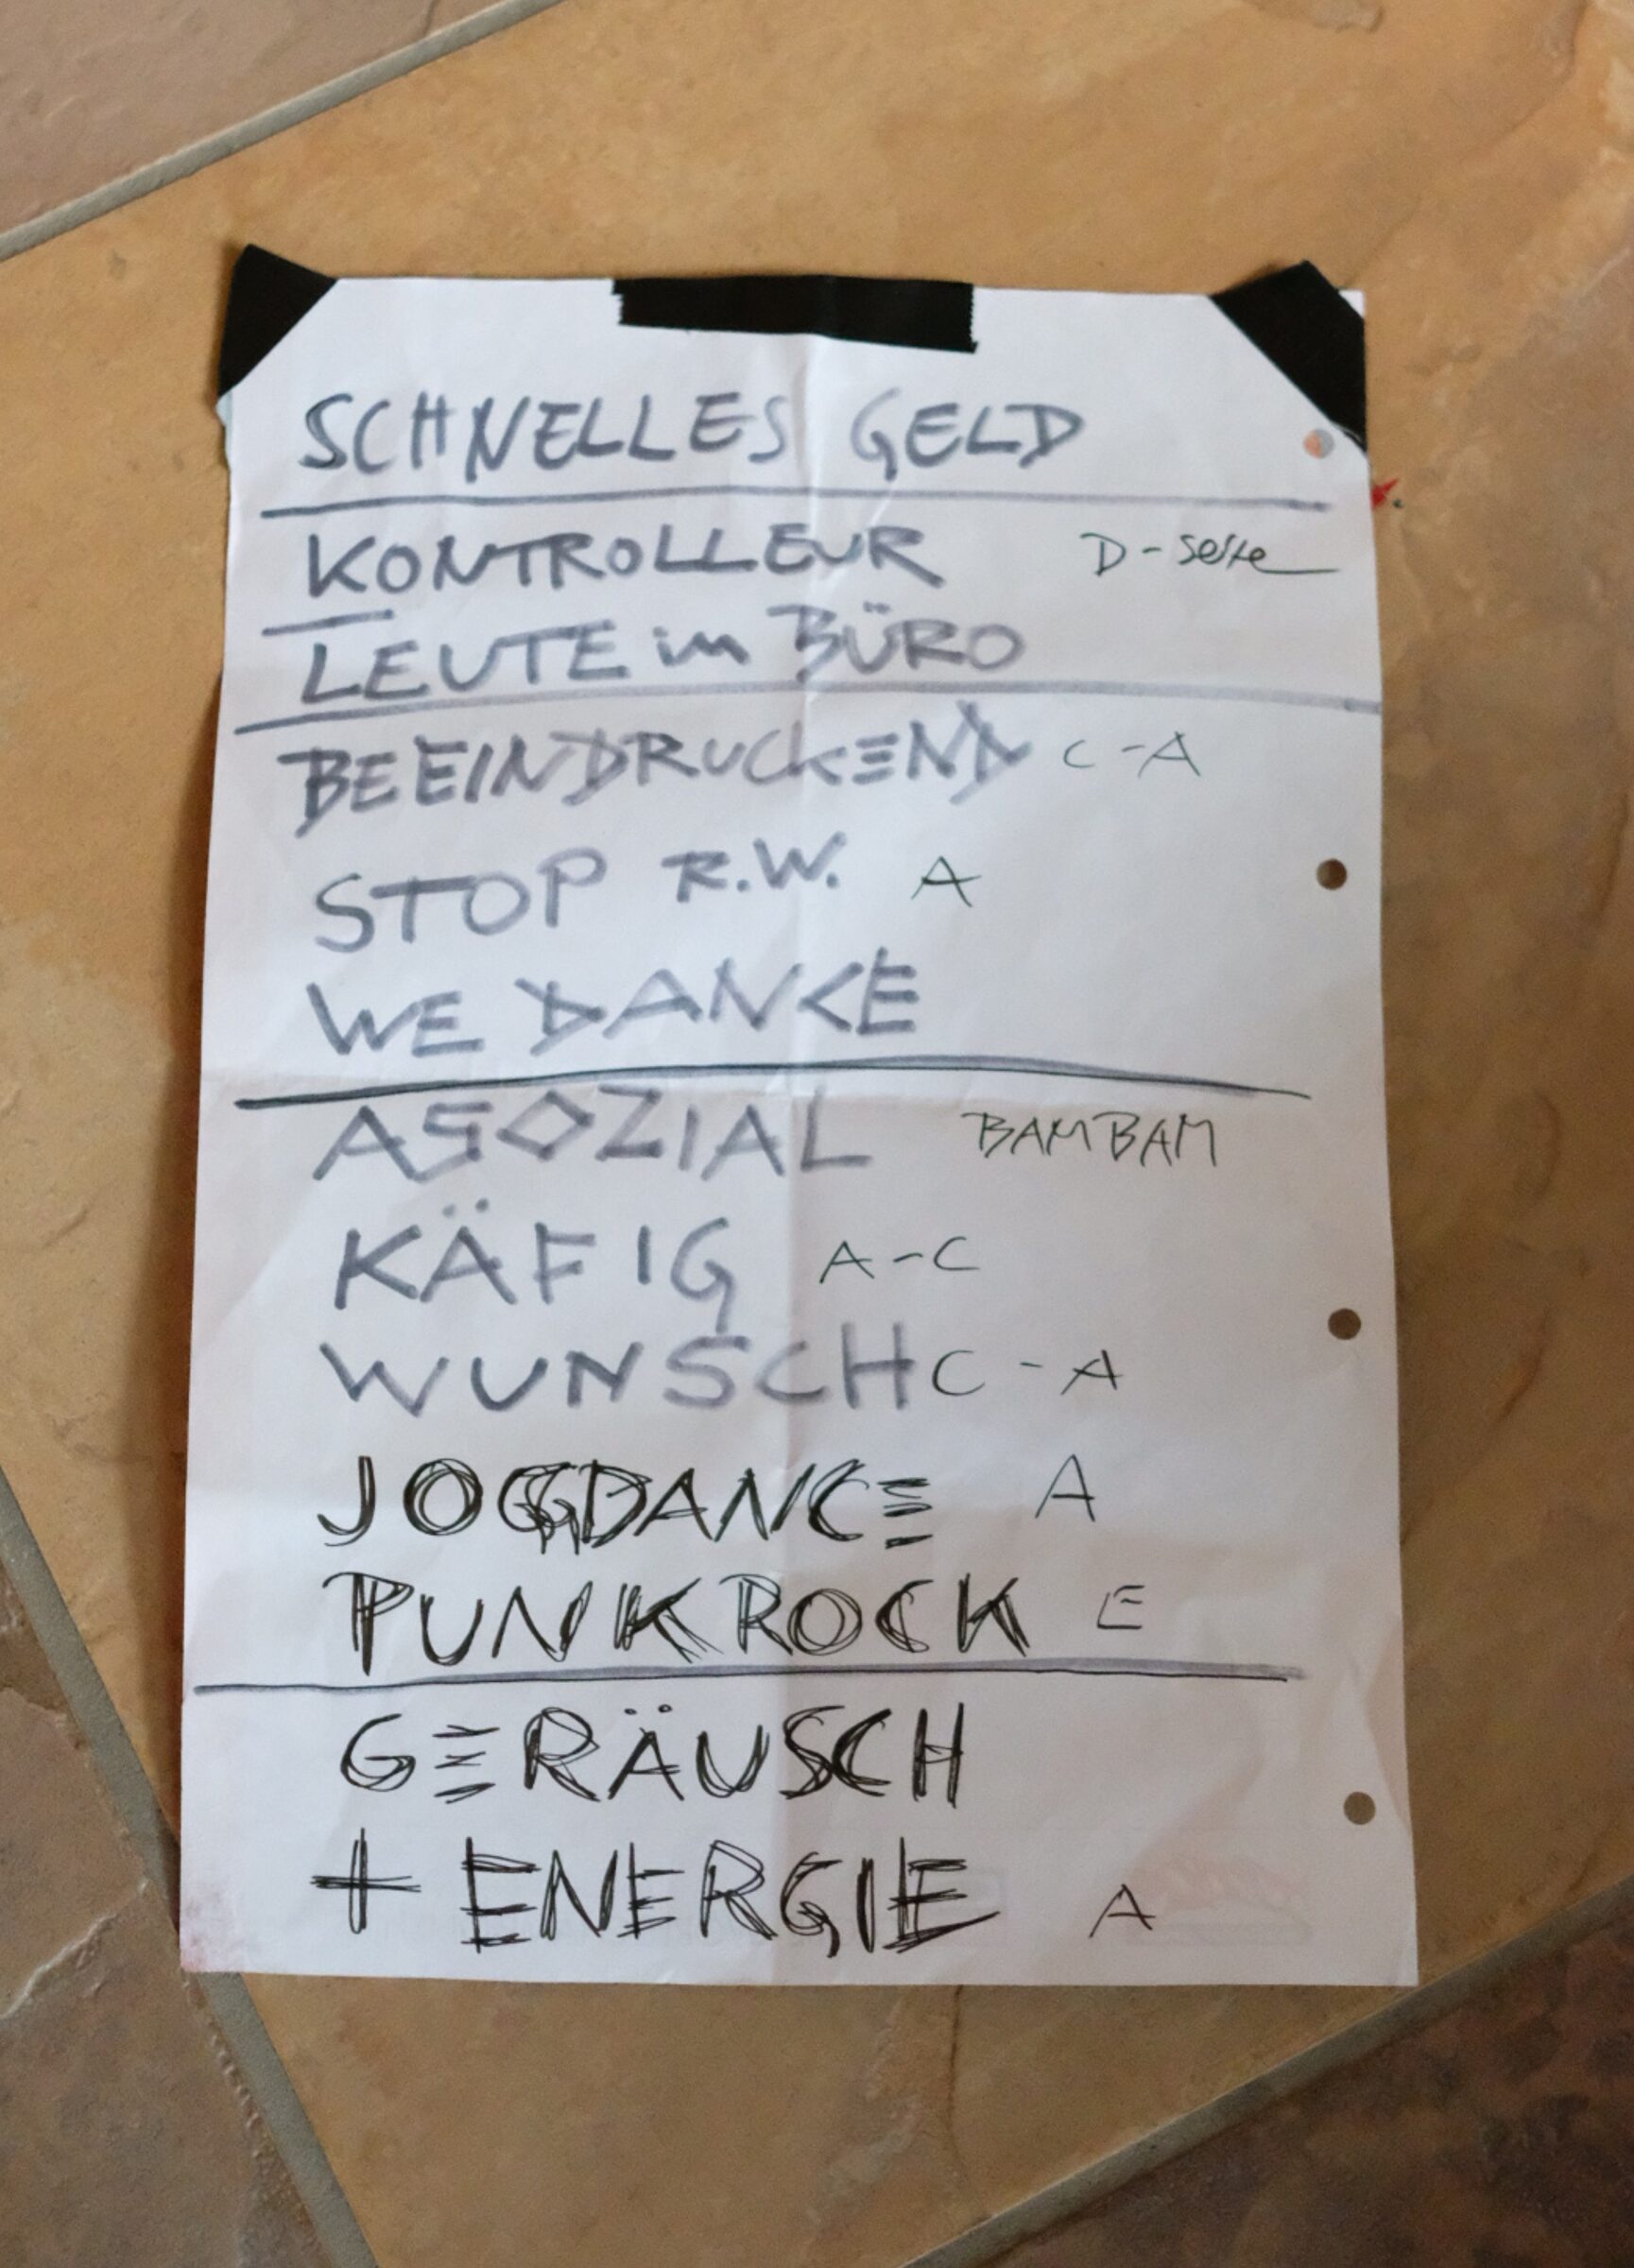 SCHNELLES GELD
KONTROLLEUR D-Seite
LEUTE im BÜRO
BEEINDRUCKEND C-A
STOP R.W. A
WE DANCE
ASOZIAL BAMBAM
KÄFIG A-C
WUNSCH C-A
JOGGDANCE A
PUNKROCK E
GERÄUSCH
+ ENERGIE A